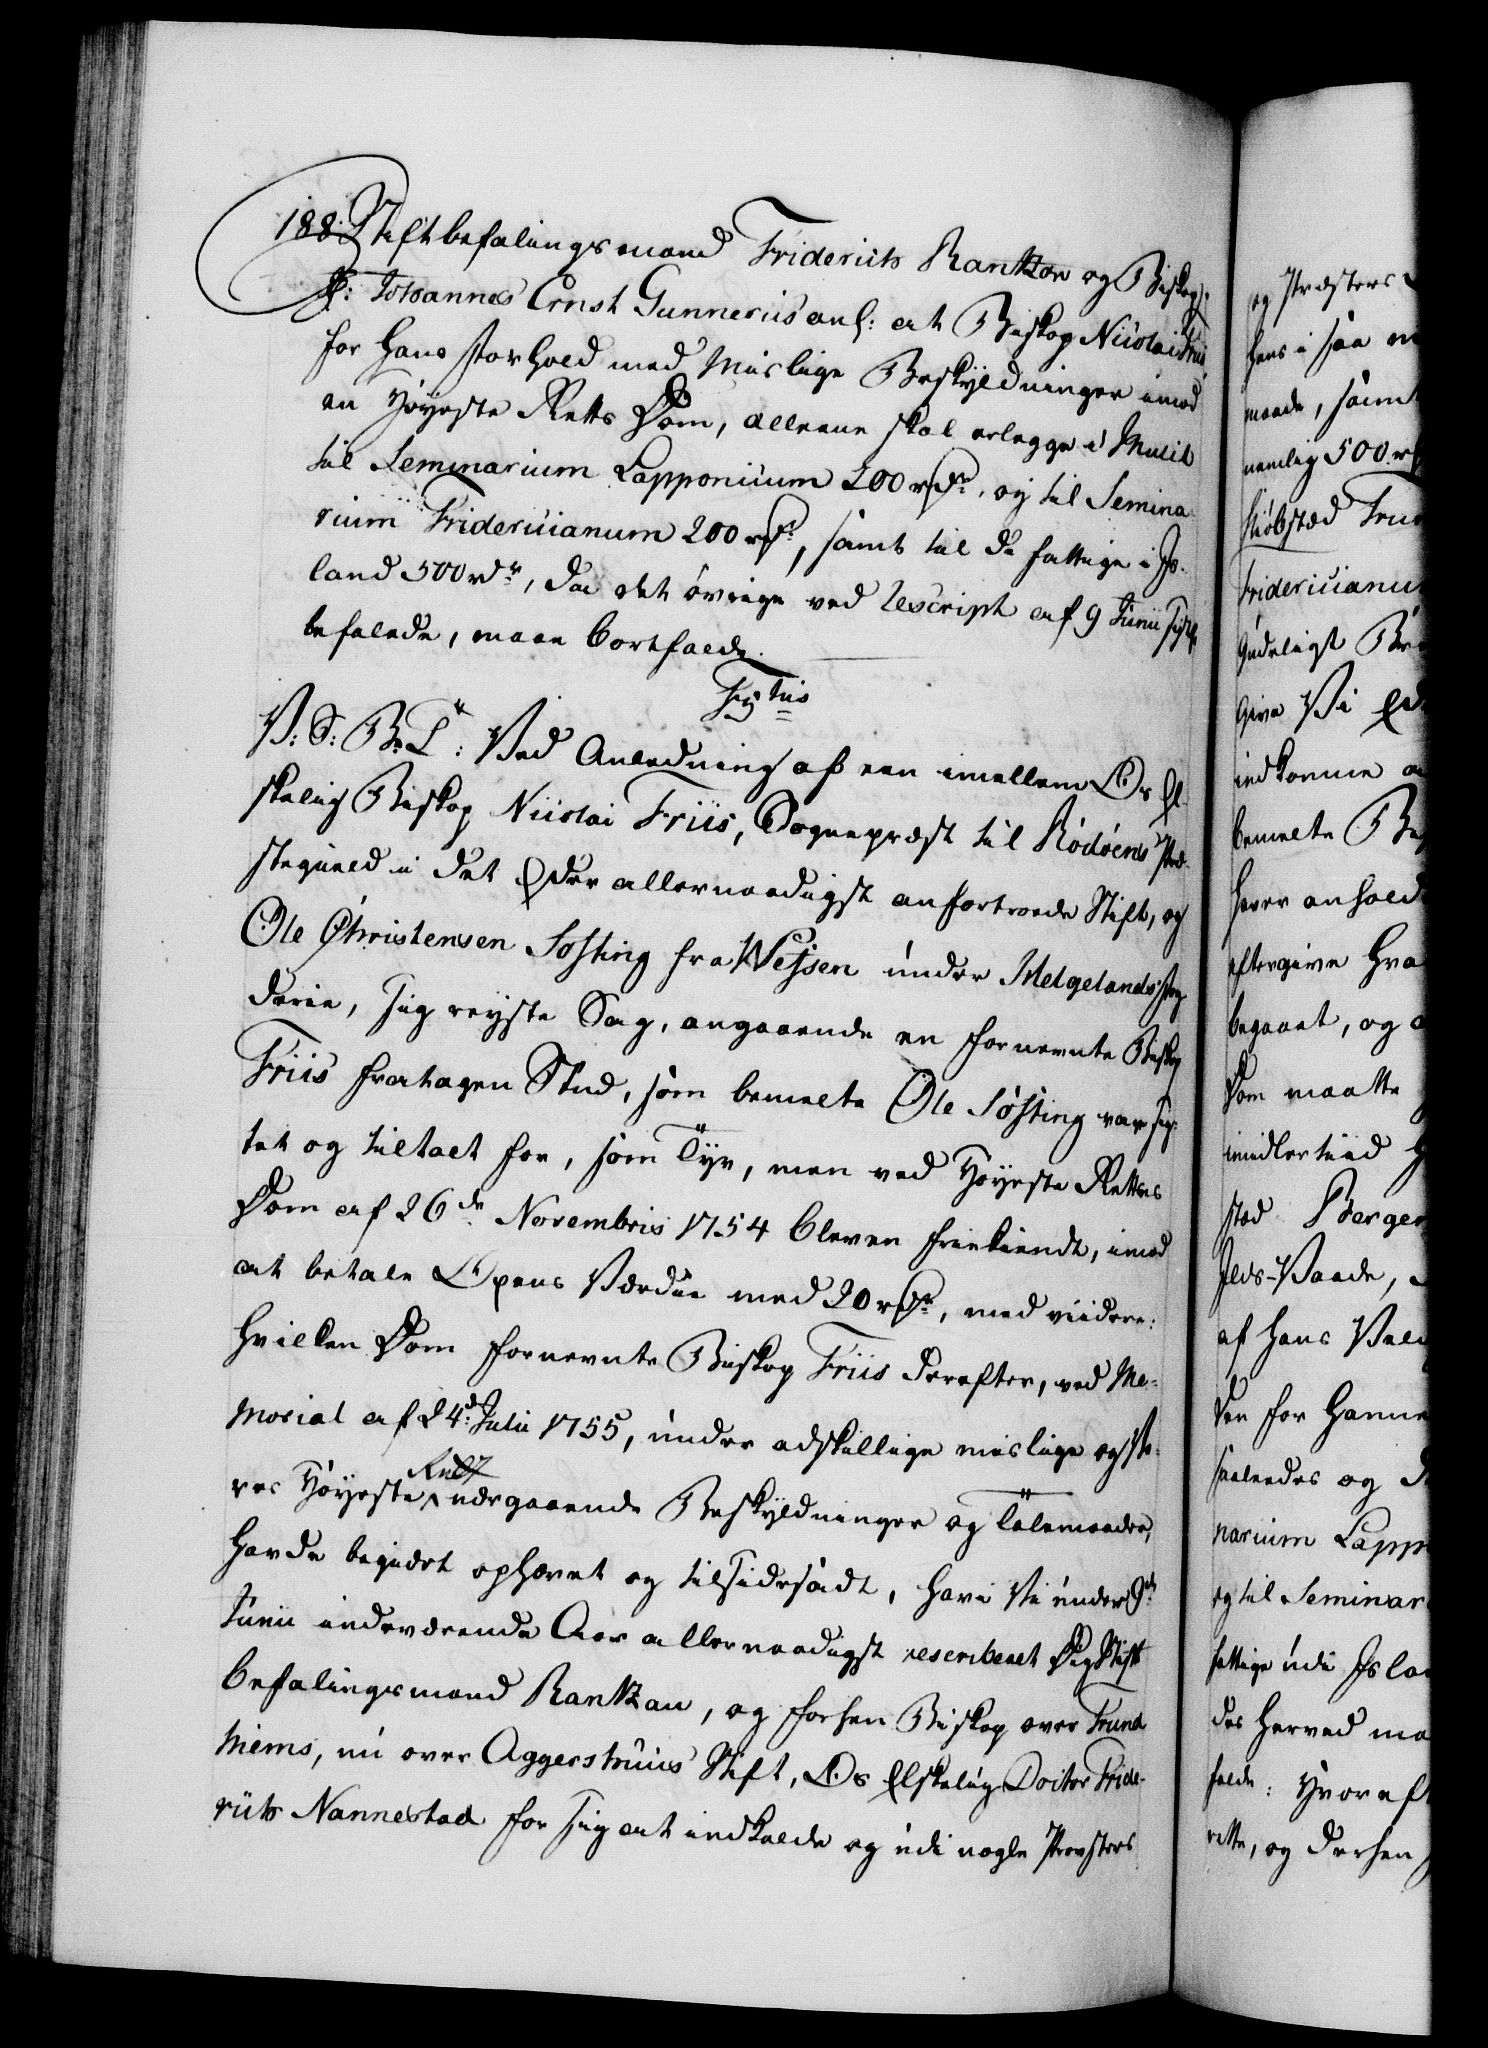 188. Stiftbefalingsmand Friderich Rantzow og Biskop
Johannes Ernst Gunnerus anl: at Biskop Nicolai Friis,
for Hans forhold med Mislige Beskyldninger imod
en Høyeste Retts Dom, alleene skal erlegge i Mulct
til Seminarium Lapponicum 200 rdr., og til Semina
rium Fridericianum 200 rdr., samt til de fattige i Is-
land 500 rdr, da det øvrige ved Rescript af 9 Junii
befalede, maae bortfalde.
V: S: B: T: Ved Anledning af een imellem Os El-
skelig Biskop Nicolai Friis, Sognepræst til Rødøens Præ-
stegield i det Eder allernaadigst anfortroede Stift, og
Ole Christensen Søfting fra Wefsen under Helgelands Fog-
derie, sig reyste Sag, angaaende en fornevnte Biskop
Friis fratagen Stud, som bemelte Ole Søfting var sig-
tet og tiltalt for, som Tyv, men ved Høyeste Rettes
Dom af 26de Novembris 1754 bleven friekiendt, imod
at betale Oxens Værdie med 20 rdr., med viidere:
hvilken Dom fornevnte Biskop Friis derefter, ved Me-
morial af 24de Julii 1755, under adskillige mislige og
res Høyeste Rett nærgaaende Beskyldninger og Talemaader,
havde begiært ophævet og tilsidesadt, have Vi under 9de
Junii indeværende Aar allernaadigst rescriberet Dig Stift
befalingsmand Rantzau, og forhen Biskop over Trund
hiems, nu over Aggershuus Stift, Os Elskelig Doctor Fride-
rich Nannestad for Sig at indkalde og udi nogle Provsters

og Præsters
hans i saa
maade, samt
nemlig 500 rd
kiøbsted
Fridericianum
Gudeligt
Give Vi
indkomme
bemelte
haver anhold
eftergive hva
begaaet, og
Dom maatte
imidlertiid
stad Bergen
Ilds-Vaade,
af hans
den for hanne
saaledes og
narium Lapp
og til Seminar
fattige udi Isla
des herved ma
falde: Hvoreft
rette, og derhen